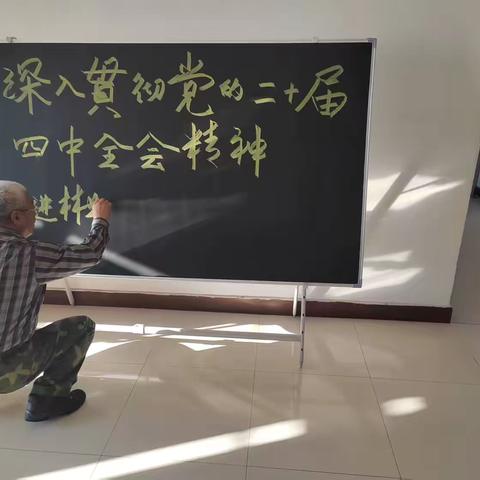 深入贯彻党的二十届
四中全会精神
进林